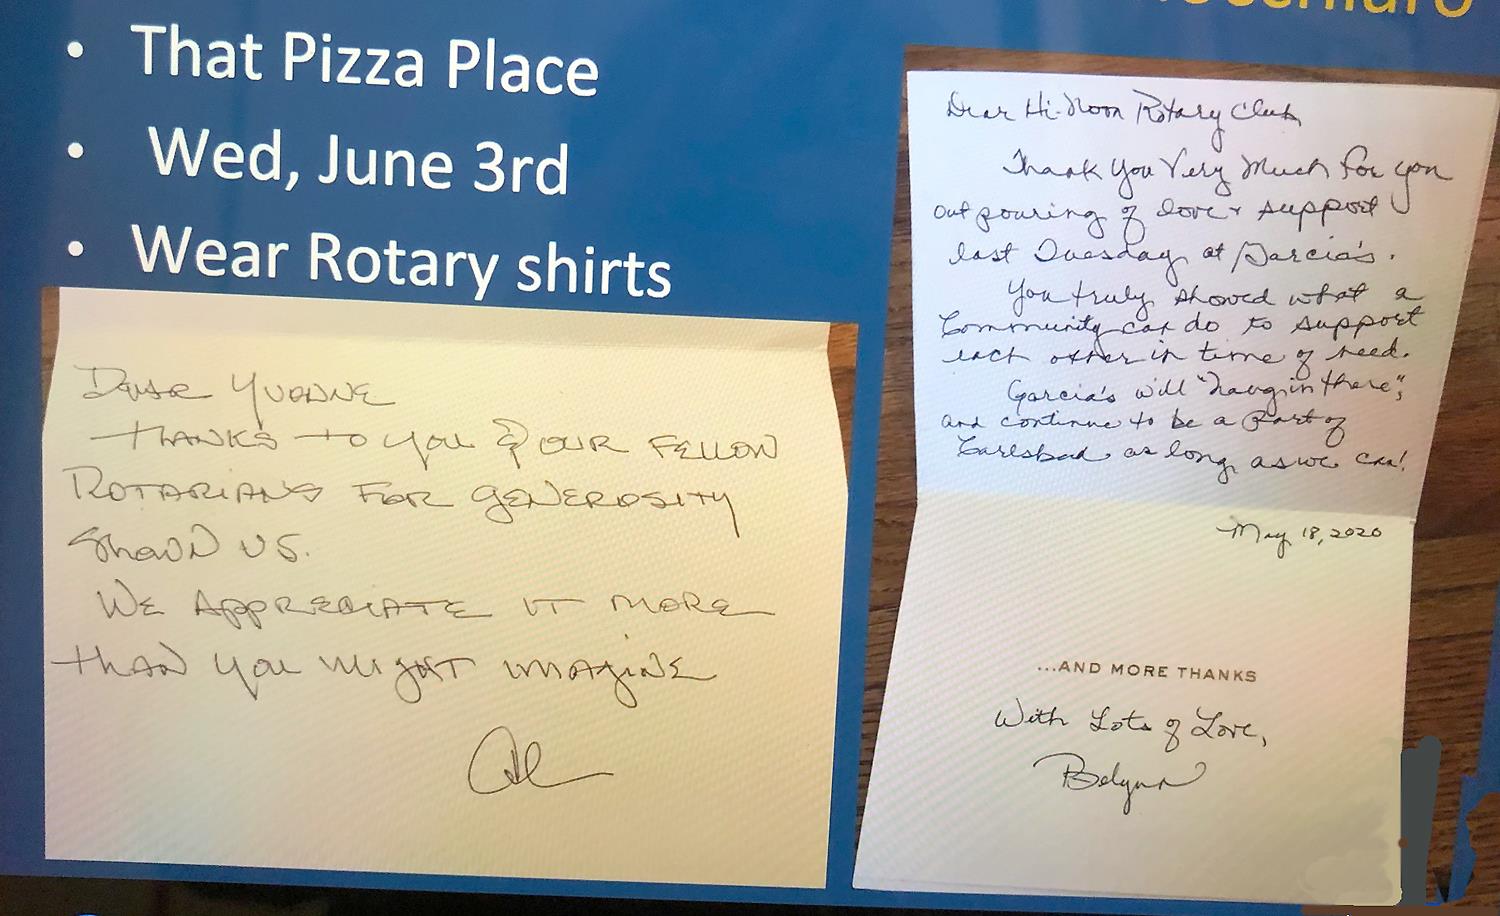 • That Pizza Place
• Wed, June 3rd
• Wear Rotary shirts
Dear Yvonne
Thanks to you & our fellow
Rotarians for generosity
shown us.
We appreciate it more
than you might imagine
Al
Dear Hi-Noon Rotary Club,
Thank you Very Much for you
outpouring of love & support
last Tuesday at Garcia's.
You truly showed what a
Community can do to support
each other in time of need.
Garcia's will "hang in there",
and continue to be a part of
Carlsbad as long as we can!
May 18, 2020
...AND MORE THANKS
With Lots of Love,
Belynn